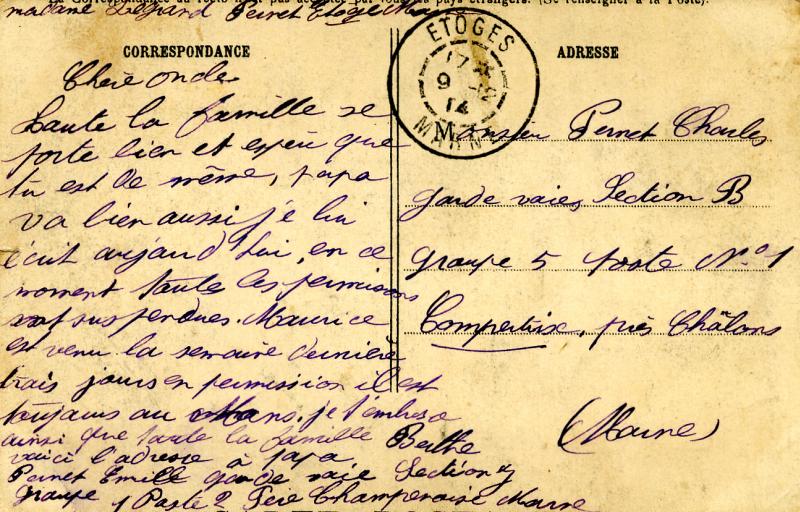 La Correspondance au recto n'est pas acceptée par tous les pays étrangers. (Se renseigner à la Poste).
madame Pernet Etoges Marne
CORRESPONDANCE
Chère oncle
toute la famille se
porte bien et espère que
tu est de même, papa
va bien aussi je lui
écrit aujourd'hui, en ce
moment toute les permissions
sont suspendues. Maurice
est venu la semaine dernière
trois jours en permission il est
toujours au Mans. je t'embrasse
ainsi que toute la famille Berthe
voici l'adresse à papa
Pernet Emille garde voie Section
groupe 1 Poste 2 Fère Champenoise Marne
ETOGES
17
9 -12
14
MARNE
ADRESSE
Monsieur Pernet Charles
garde voies Section B
groupe 5 poste No 1
Compertrix, près Châlons
(Marne)